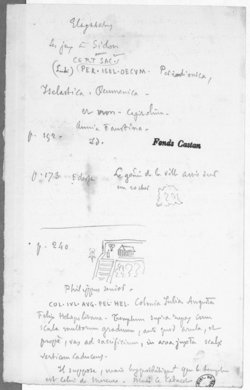 Elagabalus
Les jeux à Sidon
CERT SACR
(Ludi) PER·ISEL·OECUM· Periodonica,
Iselastica · Oecumenica ·
et non · Capitolin
Annia Faustina
p. 152 · Id. Fonds Castan
p. 173 Edesse Le génie de la ville assis sur
un rocher
p. 240
Philippus senior.
COL·IVL·AVG·FEL·HEL· Colonia Julia Augusta
Felix Heliopolitana. Templum supra rupem cum
scala multorum graduum, ante quod arula, et
prope, vas ad sacrificium, in area juxta scalas
vertice caduceus.
Il suppose, mais hypothétiquement que le temple
est celui de Mercure.